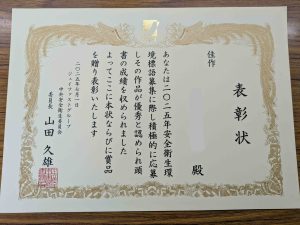 表彰状
佳作
殿
あなたは二〇二五年安全衛生環
境標語募集に際し積極的に応募
しその作品が優秀と認められ頭
書の成績を収められました
よってここに本状ならびに賞品
を贈り表彰いたします
二〇二五年七月一日
ジェイファスグループ
中央安全衛生委員会
委員長 山田 久雄